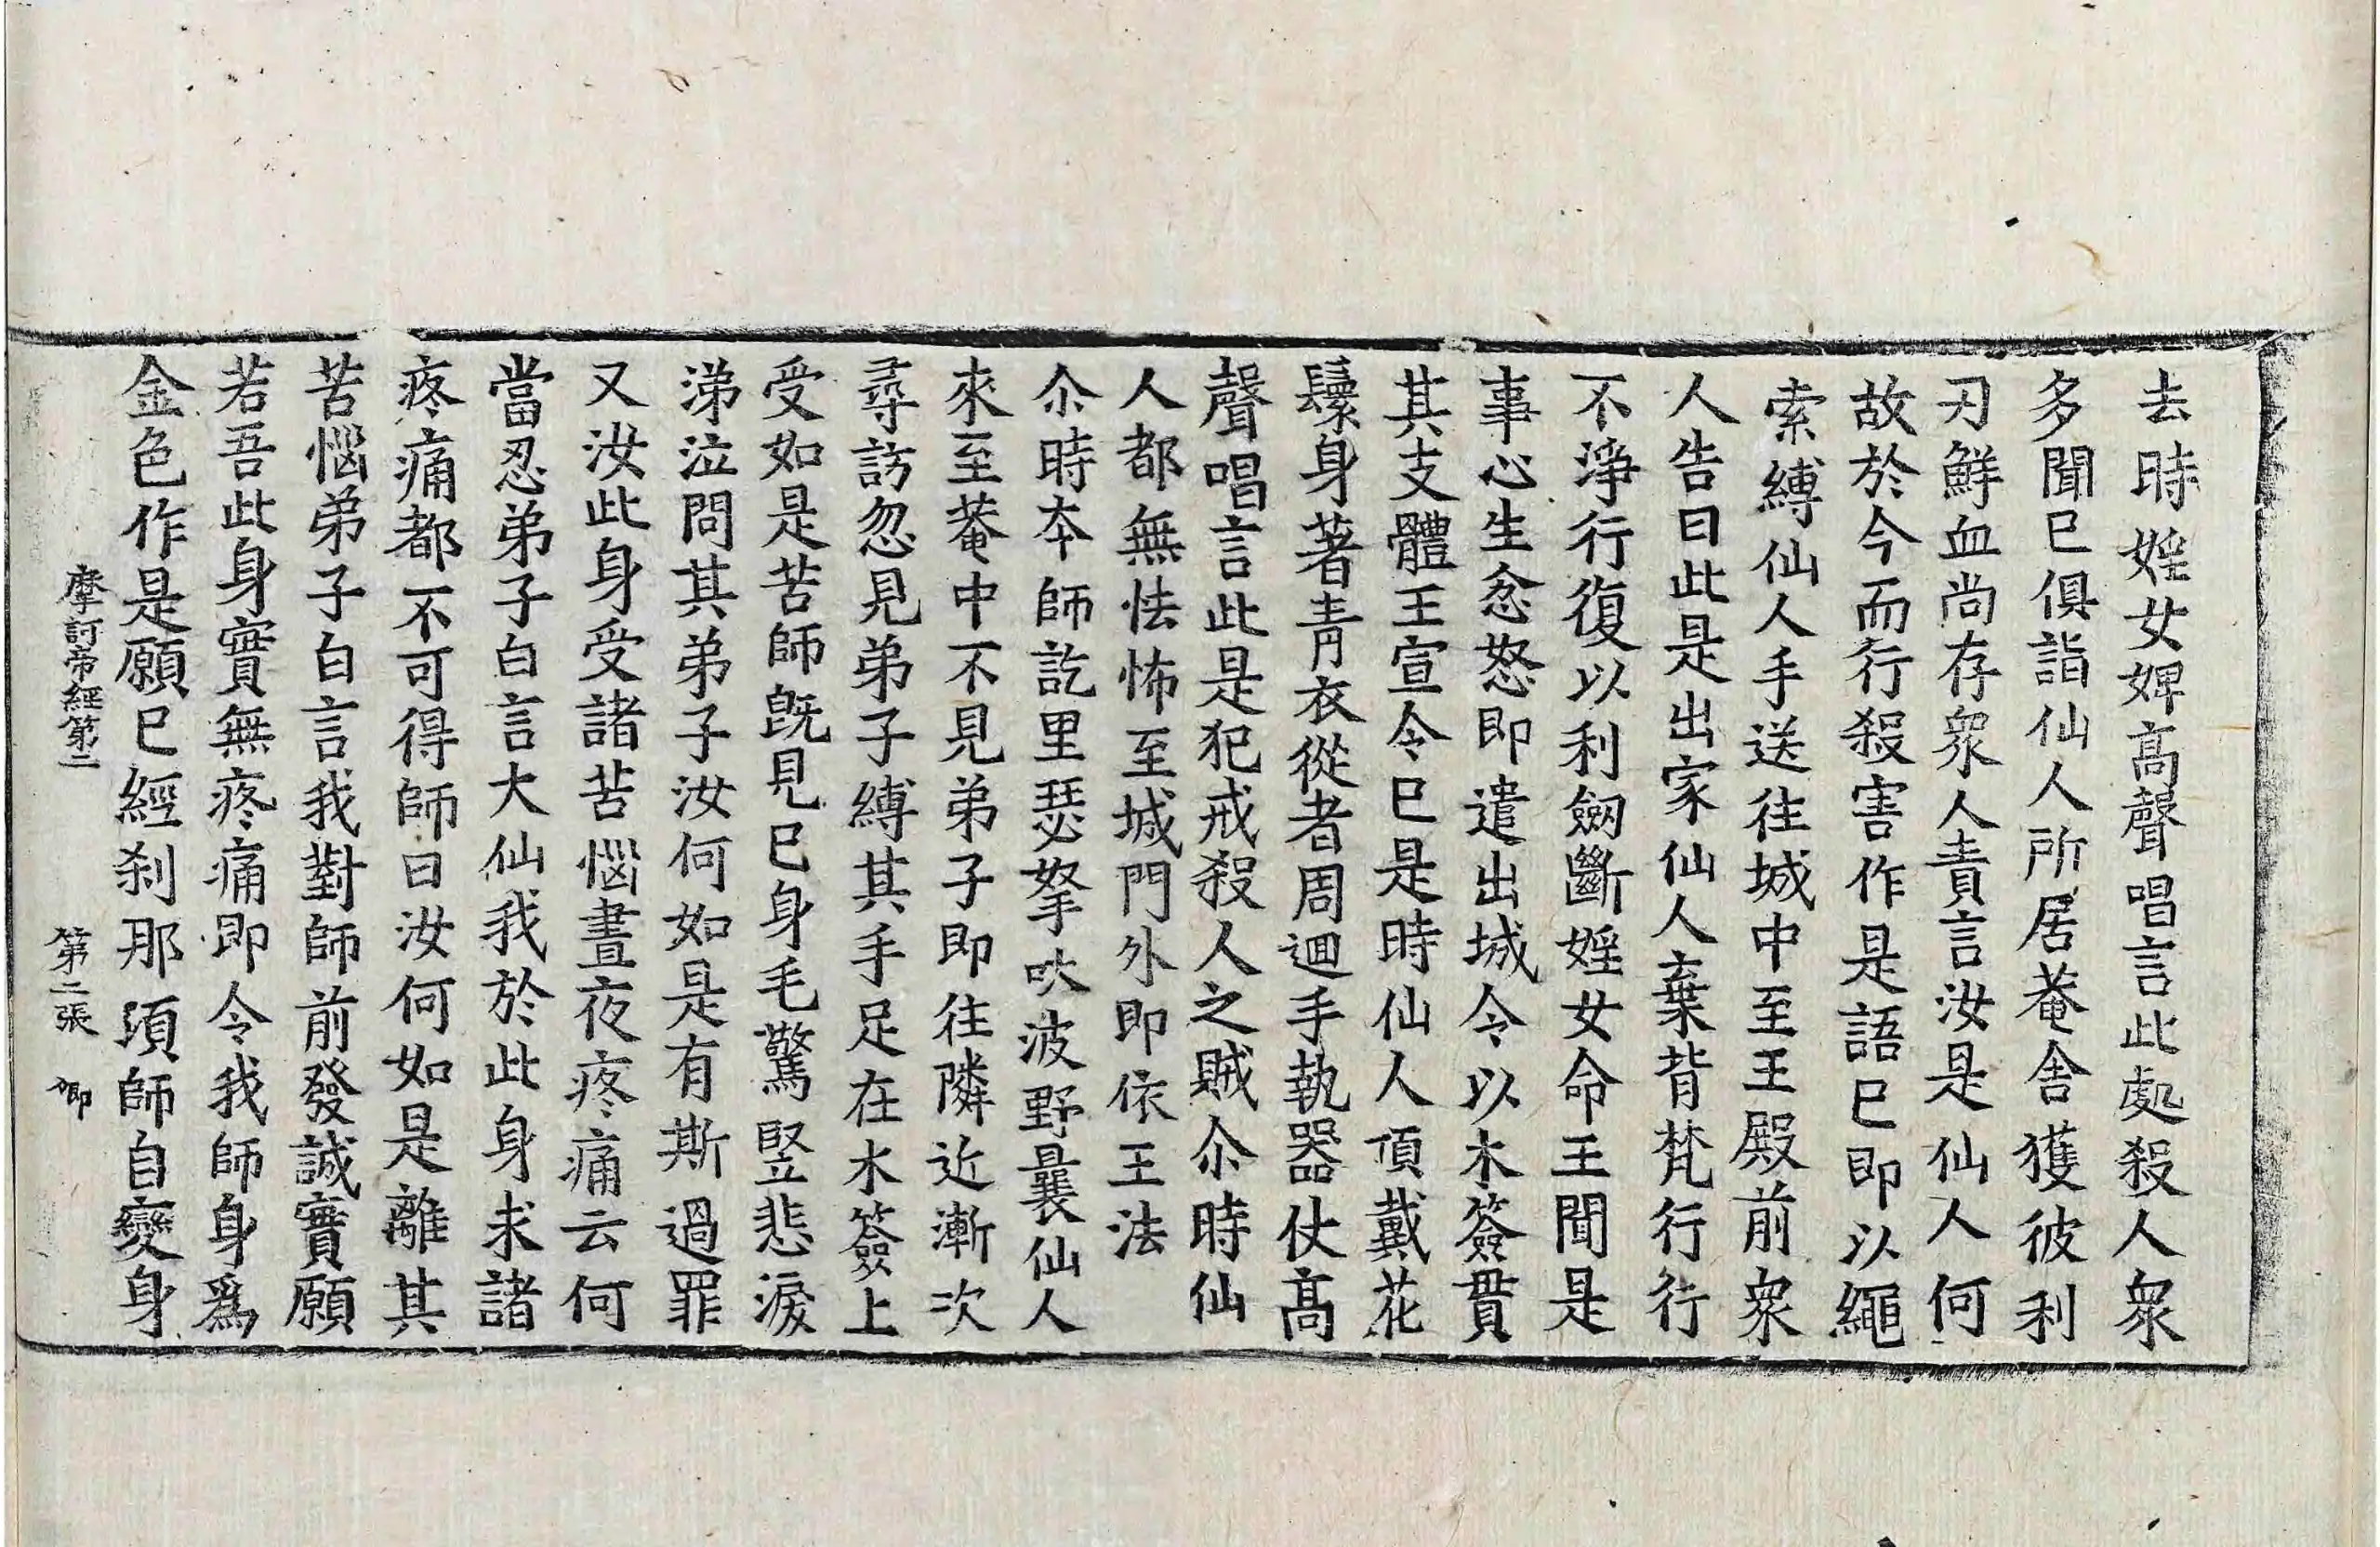 去時婬女婢高聲唱言此處殺人衆
多聞已俱詣仙人所居菴舍獲彼利
刃鮮血尚存衆人責言汝是仙人何
故於今而行殺害作是語已即以繩
索縛仙人手送往城中至王殿前衆
人告曰此是出家仙人棄背梵行行
不淨行復以利劒斷婬女命王聞是
事心生忿怒即遣出城令以木簽貫
其支體王宣令已是時仙人頂戴花
鬘身著青衣從者周迴手執器仗高
聲唱言此是犯戒殺人之賊尒時仙
人都無怯怖至城門外即依王法
尒時本師訖里瑟拏吠波野曩仙人
來至菴中不見弟子即往隣近漸次
尋訪忽見弟子縛其手足在木簽上
受如是苦師旣見已身毛驚竪悲淚
涕泣問其弟子汝何如是有斯過罪
又汝此身受諸苦惱晝夜疼痛云何
當忍弟子白言大仙我於此身求諸
疼痛都不可得師曰汝何如是離其
苦惱弟子白言我對師前發誠實願
若吾此身實無疼痛即令我師身爲
金色作是願已經刹那湏師自變身
摩訶帝經第二　第二張　卿